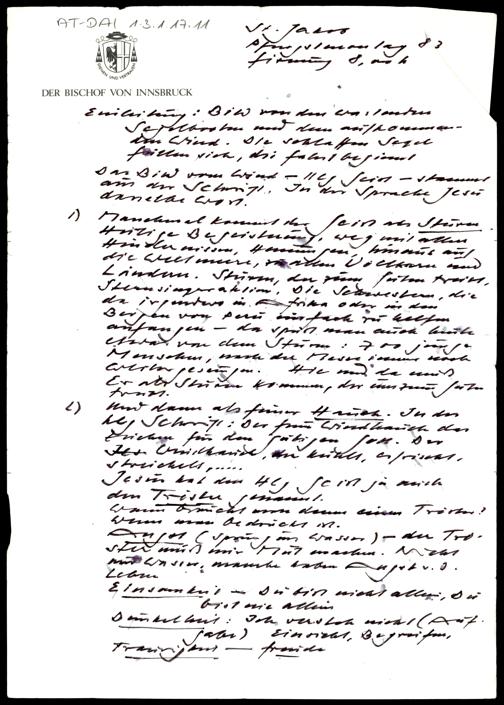 AT-DAI 1.3.1.17.11
St. Jakob
Pfingstmontag 83
Firmung 8,
DIENEN UND VERTRAUEN
DER BISCHOF VON INNSBRUCK
Einleitung: Bild von den wartenden
Segelbooten und dem aufkommen-
den Wind. Die schlaffen Segel
füllen sich, die Fahrt beginnt
Das Bild vom Wind – Hlg Geist – stammt
aus der Schrift. In der Sprache Jesu
dasselbe Wort.
1) Manchmal kommt der Geist als Sturm.
Heilige Begeisterung, weg mit allen
Hindernissen, Hemmungen, hinaus auf
die Weltmeere, zu allen Völkern und
Ländern. Sturm, der zum Guten treibt,
Sternsingeraktion. Die Schwestern, die
da irgendwo in Afrika oder in den
Bergen von Peru einfach zu helfen
anfangen – da spürt man auch heute
etwas von dem Sturm: 700 junge
Menschen, nach der Messe immer noch
weitergesungen. Hie und da muß
Er als Sturm kommen, der uns zum Guten
treibt.
2) Und dann als feiner Hauch. In der
hlg Schrift: Der feine Windhauch das
Zeichen für den gütigen Gott. Der
Windhauch, der kühlt, erfrischt,
streichelt, .....
Jesus hat den Hlg Geist ja auch
den Tröster genannt.
Wann braucht man denn einen Tröster?
Wenn man bedrückt ist.
Angst (Sprung ins Wasser) – der Trö-
ster muß mir Mut machen. Nicht
nur Wasser, manche haben Angst v. d.
Leben
Einsamkeit – Du bist nicht allein, Du
bist nie allein
Dunkelheit: Ich versteh nicht (Auf-
gabe) Einsicht, Begreifen,
Traurigkeit – Freude